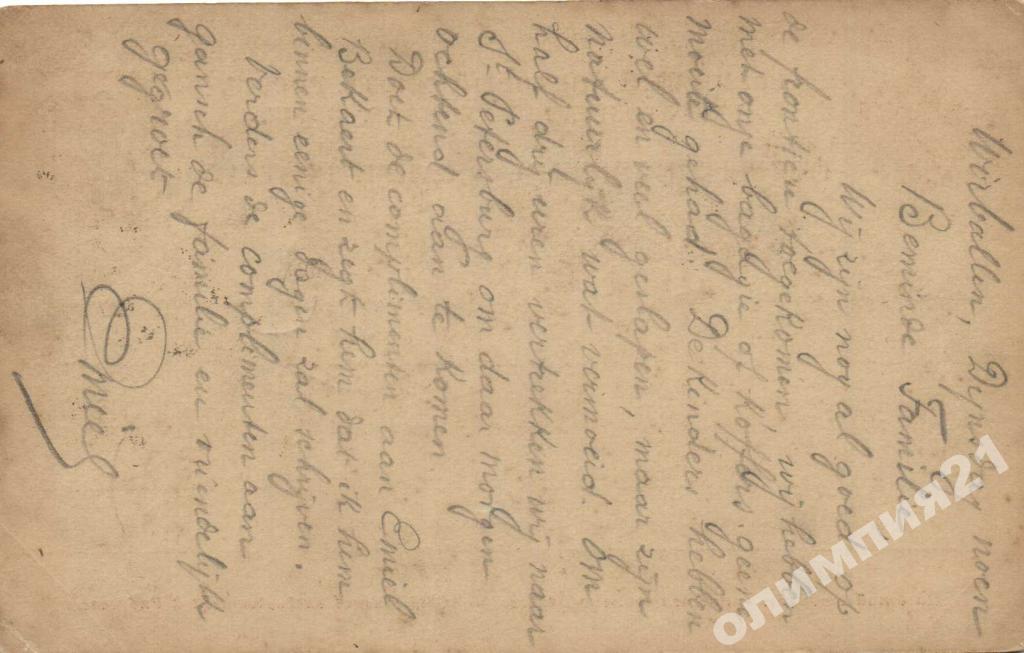 Wirballen, Dynsdag noen
Beminde Familie
Wij zijn nog al goed op
de frontière toegekomen, wij hebben
met onze bagagie of koffers geen
moeite gehad. De kinders hebben
wel en veel geslapen, maar zijn
natuurlijk wat vermoeid. Om
half drij uren vertrekken wij naar
St Petersburg om daar morgen
ochtend aan te komen.
Doet de complimenten aan Emiel
Bekaert en zegt hem dat ik hem
binnen eenige dagen zal schrijven.
Verders de complimenten aan
gansch de familie en vriendelijk
gegroet
Emiel
олимпия21